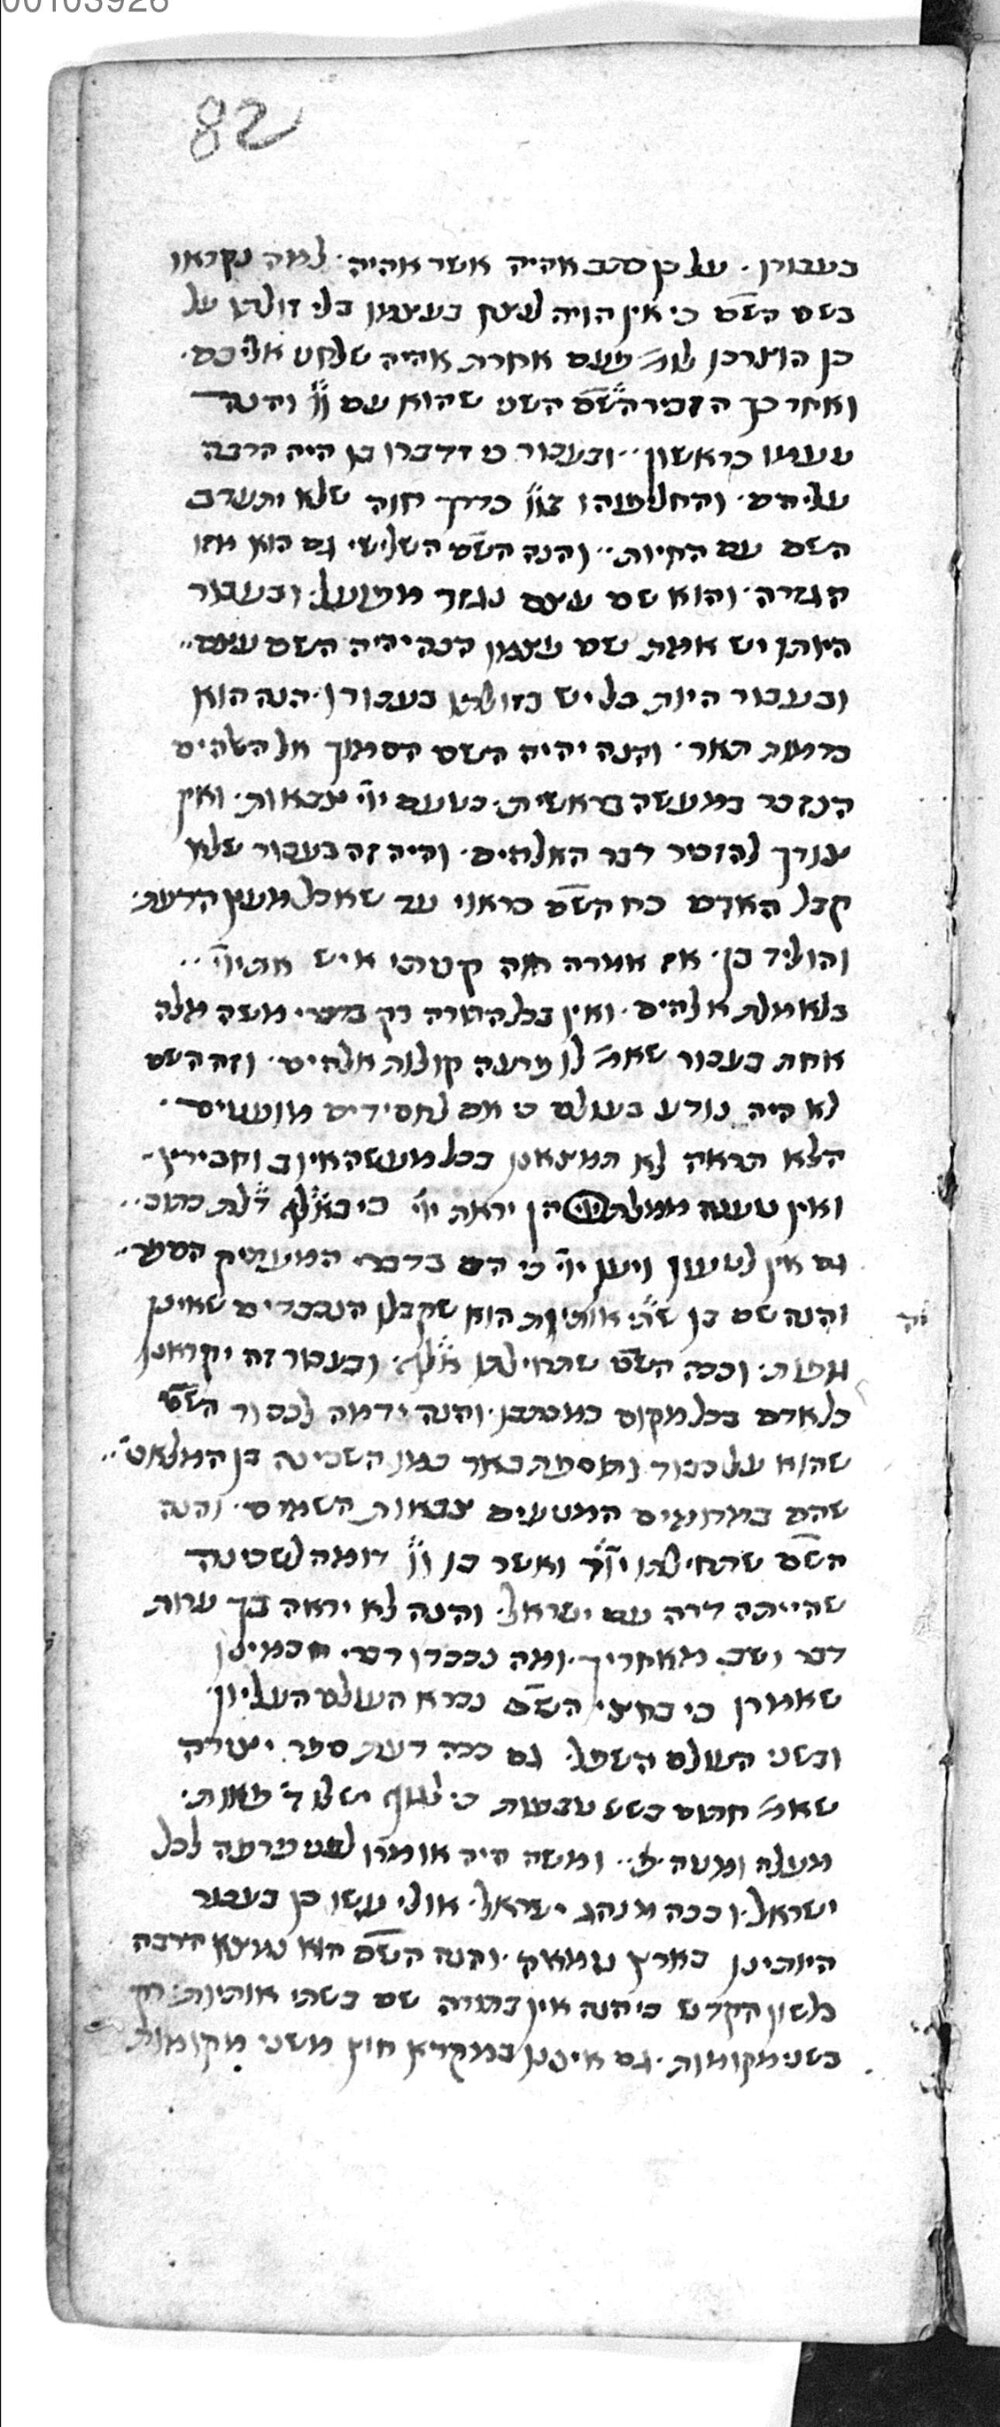 00103926
82
בעבורו · על כן כתב אהיה אשר אהיה · למה נקראו
בשם השם כי אין הויה לנצח בעצמו בלי זולתו על
כן הוצרכו לומ' פעם אחרת אהיה שלחני אליכם ·
ואחר כך הזכיר השם השני שהוא עם וו והנה
טעמו כראשון ·· ובעבור כי זדברו בן היה הרבה
עליהם · והחליפוהו בוו כדרך חוה שלא יתערב
השם עם החיות ·· והנה השם השלישי גם הוא מזו
הגזרה · והוא שם עצם נגזר מפועל · ובעבור
היותו יש אמת שם עצמו הנה יהיה השם עצם ··
ובעבור היות כל יש בזולתו בעבורו · הנה הוא
כדמות תאר · והנה יהיה השם הסמוך אל השלהים
הנזכר במעשה בראשית · כטעם יוי צבאות · ואין
צורך להזכיר דבר האלהים · והיה זה בעבור שלא
קבל האדם כח השם כראוי עד שאכל מעץ הדעת ·
והוליד בן · אז אמרה חוה קניתי איש את יוי ··
בלא מלת אלהים · ואין בכל התורה רק בדברי משה מלה
אחת בעבור שאמ' לו פרעה קולות אלהים · וזה השם
לא היה נודע בעולם כי אם לחסידים מועטים ·
הלא תראה לא תמצאנו בכל מעשה איוב וחביריו ·
ואין טענה ממלת הן יראת יוי כי באלף דלת כתוב ··
גם אין לטעון ויען יוי כי הם בדברי המעתיק הספר ··
והנה שם בן שתי אותיות הוא שקבלו הנכבדים שאינן
עפות · וככה השם שתחילתו אלף · ובעבור זה יקראנו
כל אדם בכל מקום כמכתבו · והנה ידמה לכסוד השם
שהוא על כבוד ותוספת באר כמו השכינה בן המלאכי ··
שהם במרומים המטעים צבאות השמים · והנה
השם שתחילתו יוד ואשר בו וו דומה לשכינה
שהייתה דרה עם ישראל · והנה לא יראה בך ערות
דבר ושב מאחריך · ומה נכבדו דברי חכמינו
שאמרו כי בחצי השם נברא העולם העליון ·
ובשני העולם השפל · גם ככה דעת ספר יצירה
שאמ' חתום בשש טבעות כי לגוף יש לו ו' פאות ·
מעלה ומטה · ומשה היה אומרו לפני פרעה לכל
ישראל · וככה מנהג ישראל · אולי עשו כן בעבור
היותינו בארץ טמאה · והנה השם הוא נמצא הרבה
בלשון הקדש כי הנה אין בתורה שם בשתי אותיות · רק
בשני מקומות · גם איננו במקרא חוץ משני מקומות